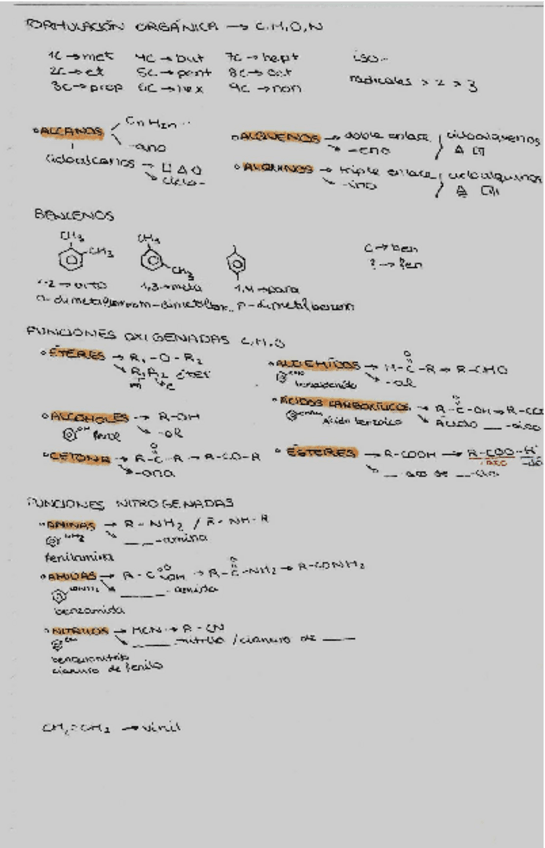 FORMULACIÓN ORGÁNICA → C,H,O,N
1C → met 4C → but 7C → hept iso-
2C → et 5C → pent 8C → oct radicales > 2 > 3
3C → prop 6C → hex 9C → non
ALCANOS CnH2n
-ano
cicloalcanos →
ciclo-
ALQUENOS → doble enlace, cicloalquenos
-eno
ALQUINOS → triple enlace, cicloalquinos
-ino
BENCENOS
CH3 CH3
CH3 CH3
C → ben
? → fen
1,2 → orto 1,3 → meta 1,4 → para
FUNCIONES OXIGENADAS C,H,O
ÉTERES → R1-O-R2
R1R2 éter
ALDEHÍDOS → H-C-R → R-CHO
O
-al
ALCOHOLES → R-OH
OH fenol -ol
ÁCIDOS CARBOXÍLICOS → R-C-OH →
O
ácido benzoico ácido ___-oico
CETONA → R-C-R → R-CO-R
O
-ona
ÉSTERES → R-COOH → R-COO-
___ de ___-ilo
FUNCIONES NITROGENADAS
AMINAS → R-NH2 / R-NH-R
NH2 ___-amina
fenilamina
AMIDAS → R-C-OH → R-C-NH2 → R-CONH2
O O
CONH2 ___-amida
benzamida
NITRILOS → HCN → R-CN
CN ___-nitrilo / cianuro de ___
cianuro de fenilo
→ vinil